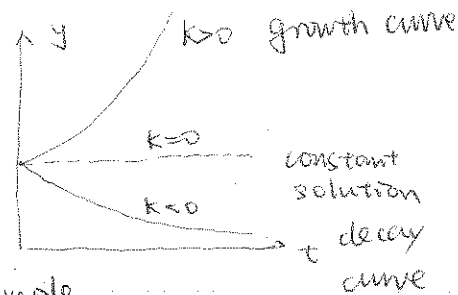 y
k>0 growth curve
k=0
constant
solution
k<0
t decay
curve